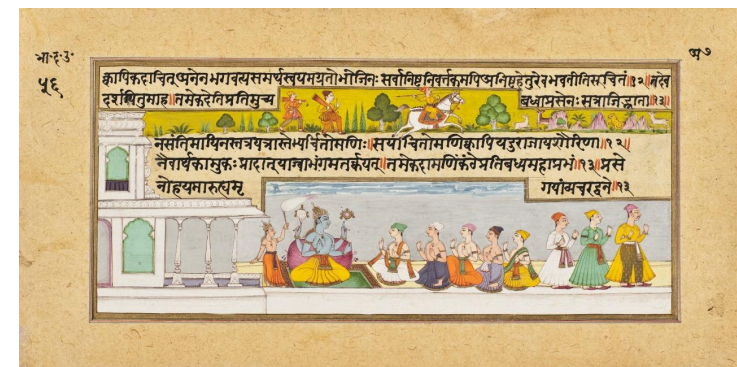 भा॰द॰उ॰
५६
अ७
क्वापिकदाचित् अनेनभगवत्यसमर्थ सर्वानिष्टनिवर्तकमपिअनिष्टहेतुरेवभवतीतिसूचितं॥१२॥तदेव
दर्शयितुमाह॥तमेकदेतिप्रतिमुच्य बध्वाप्रसेनः सत्राजिद्भ्राता॥१३॥
नसंतिमायिनस्तत्रयत्रास्तेभ्यर्चितोमणिः॥सयाचितोमणिंक्वापियदुराजायशौरिणा॥१२॥
नैवार्थकामुकः प्रादात्याच्ञाभंगमतर्कयन्॥तमेकदामणिंकंठेप्रतिबध्यमहाप्रभं॥१३॥प्रसे
नोहयमारुह्यमृ गयांव्यचरद्वने॥१३